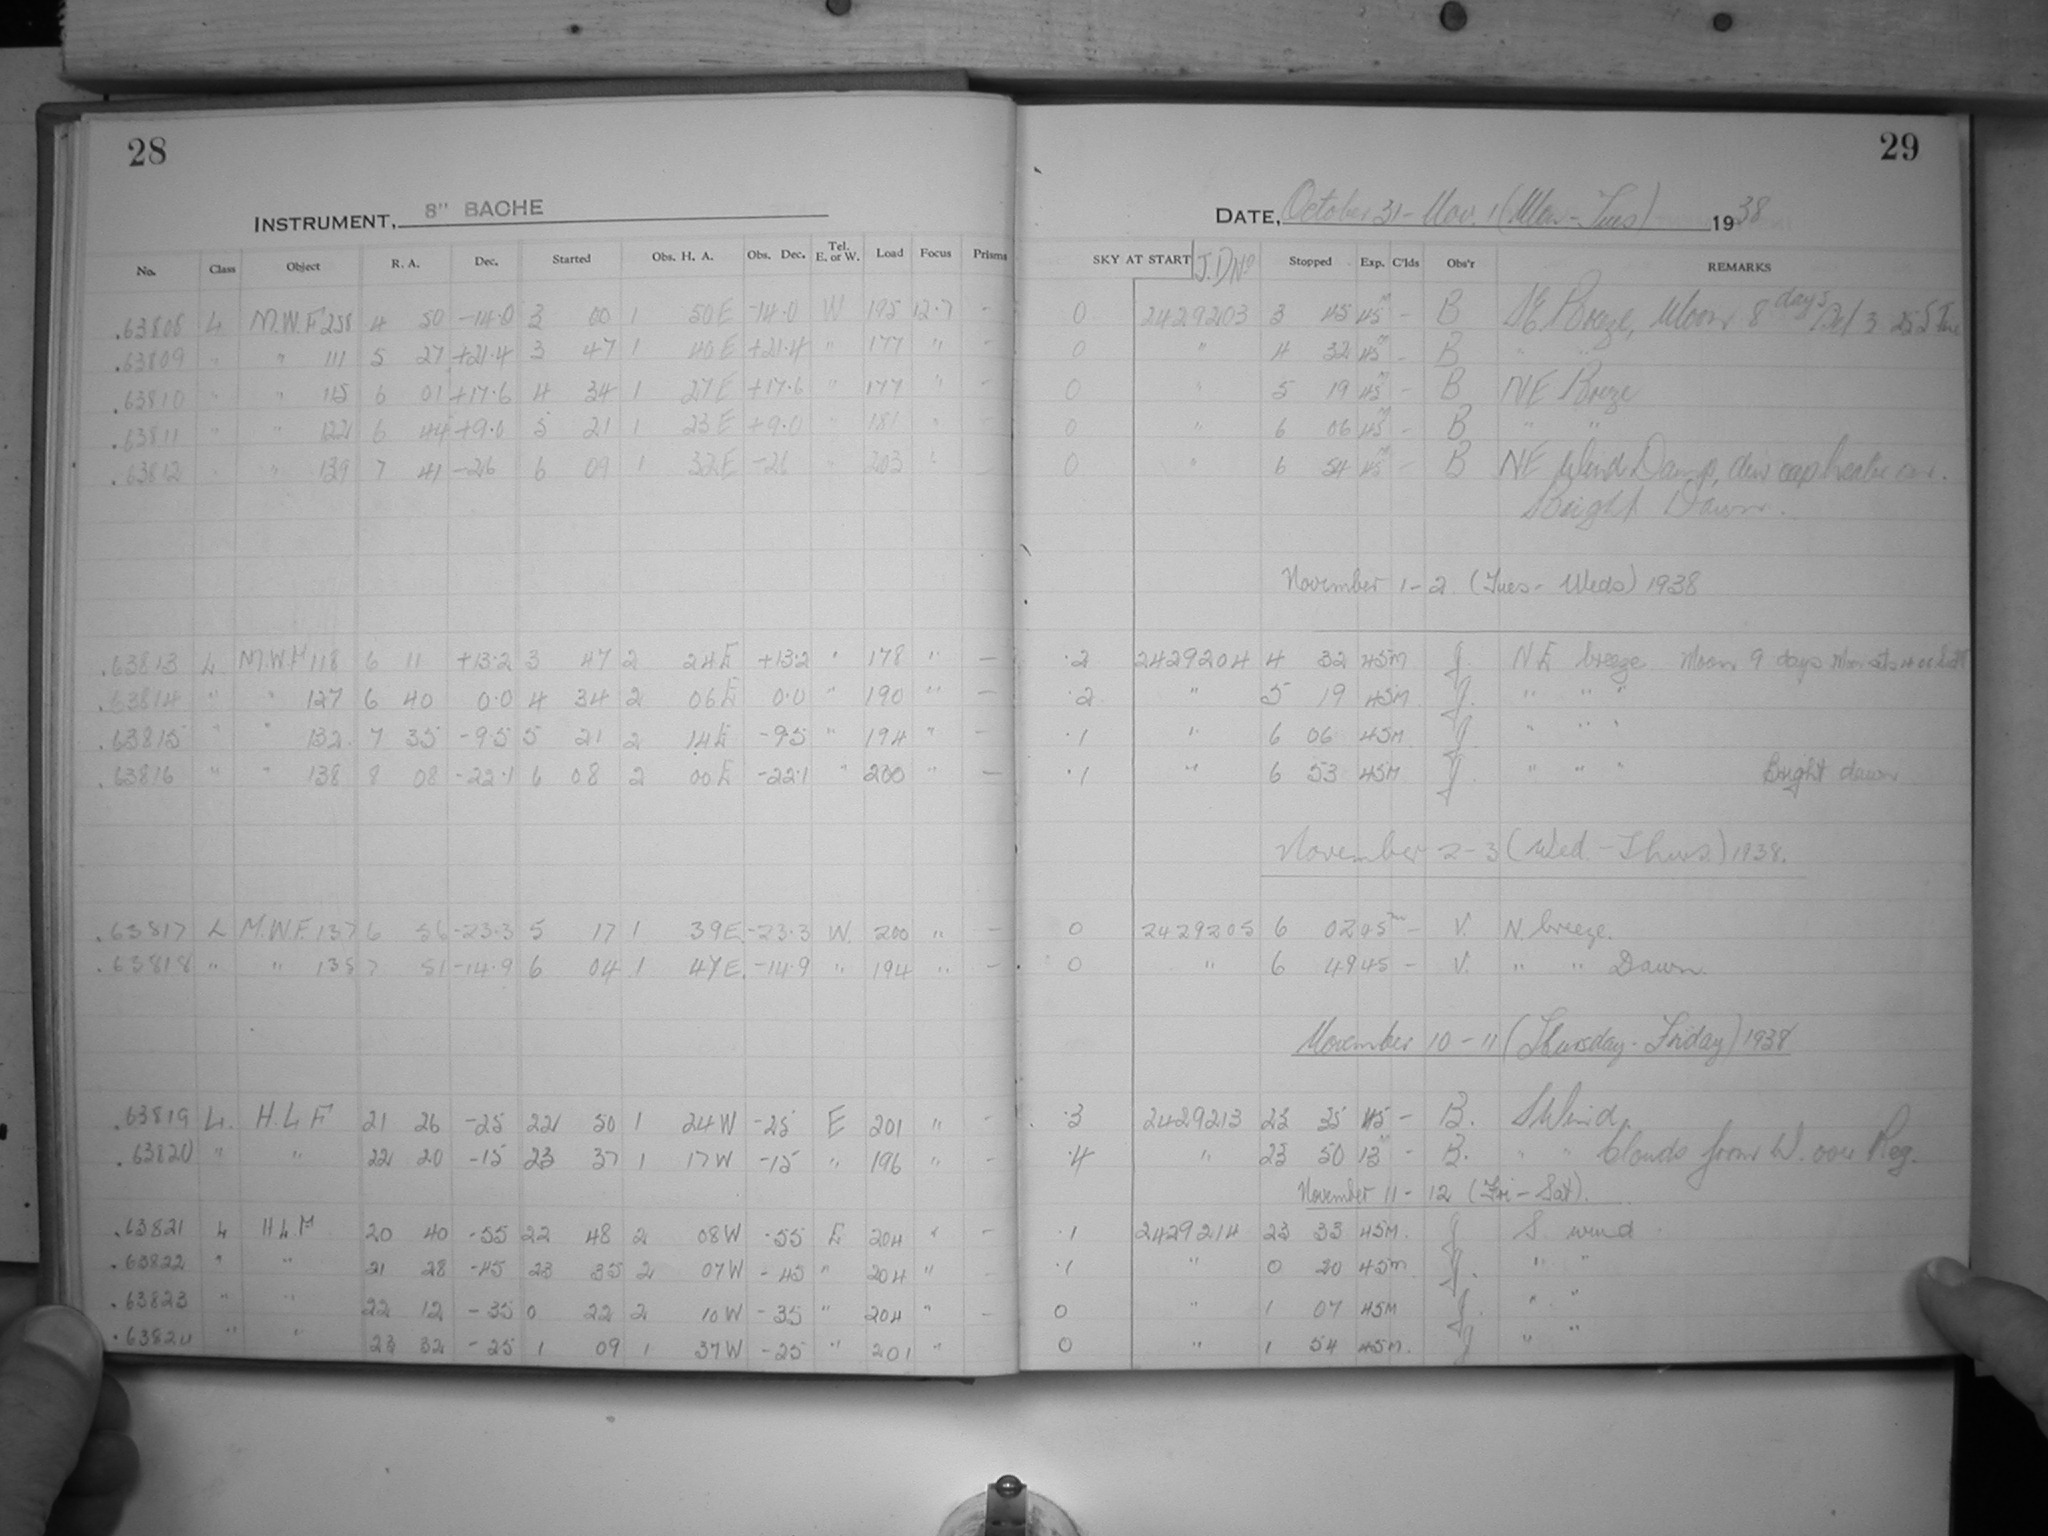 28
29
INSTRUMENT, 8" BACHE
DATE, October 31 - Nov. 1 (Mon - Tues) 1938
No. Class Object R. A. Dec. Started Obs. H. A. Obs. Dec. Tel. E. or W. Load Focus Prisms SKY AT START J.D No Stopped Exp. C'lds Obs'r REMARKS
.63808 L M.W.F 258 4 50 -14.0 3 00 1 50E -14.0 W 195 12.7 - 0 2429203 3 45 45m - B SE Breeze, Moon 8 days
.63809 " " 111 5 27 +21.4 3 47 1 40E +21.4 " 177 " - 0 " 4 32 45m - B " "
.63810 " " 115 6 01 +17.6 4 34 1 27E +17.6 " 177 " - 0 " 5 19 45m - B NE Breeze
.63811 " " 122 6 44 +9.0 5 21 1 23E +9.0 " 181 " - 0 " 6 06 45m - B " "
.63812 " " 139 7 41 -26 6 09 1 32E -26 " 203 " - 0 " 6 54 45m - B NE Wind Damp, dew cap heater on.
Bright Dawn.
November 1-2 (Tues - Weds) 1938
.63813 L M.W.F 118 6 11 +13.2 3 47 2 24E +13.2 " 178 " - .2 2429204 4 32 45M J. NE breeze Moon 9 days
.63814 " " 127 6 40 0.0 4 34 2 06E 0.0 " 190 " - .2 " 5 19 45M J. " " "
.63815 " " 132 7 35 -9.5 5 21 2 14E -9.5 " 194 " - .1 " 6 06 45M J " " "
.63816 " " 138 8 08 -22.1 6 08 2 00E -22.1 " 200 " - .1 " 6 53 45M J " " " Bright dawn
November 2-3 (Wed. - Thurs.) 1938.
.63817 L M.W.F. 137 6 56 -23.3 5 17 1 39E -23.3 W. 200 " - 0 2429205 6 02 45m - V. N. breeze.
.63818 " " 135 7 51 -14.9 6 04 1 47E. -14.9 " 194 " - 0 " 6 49 45 - V. " " Dawn.
November 10 - 11 (Thursday - Friday) 1938
.63819 L. H.L.F 21 26 -25 22 50 1 24W -25 E 201 " - .3 2429213 23 35 45 - B. S Wind.
.63820 " " 22 20 -15 23 37 1 17W -15 " 196 " - .4 " 23 50 13m - B. " " Clouds from W. over Reg.
November 11 - 12 (Fri - Sat).
.63821 L H.L.F. 20 40 -55 22 48 2 08W -55 E 204 " - .1 2429214 23 33 45M. J S. wind
.63822 " " 21 28 -45 23 35 2 07W -45 " 204 " - .1 " 0 20 45m J. " "
.63823 " " 22 12 -35 0 22 2 10W -35 " 204 " - 0 " 1 07 45M J. " "
.63824 " " 23 32 -25 1 09 1 37W -25 " 201 " 0 " 1 54 45M. J " "